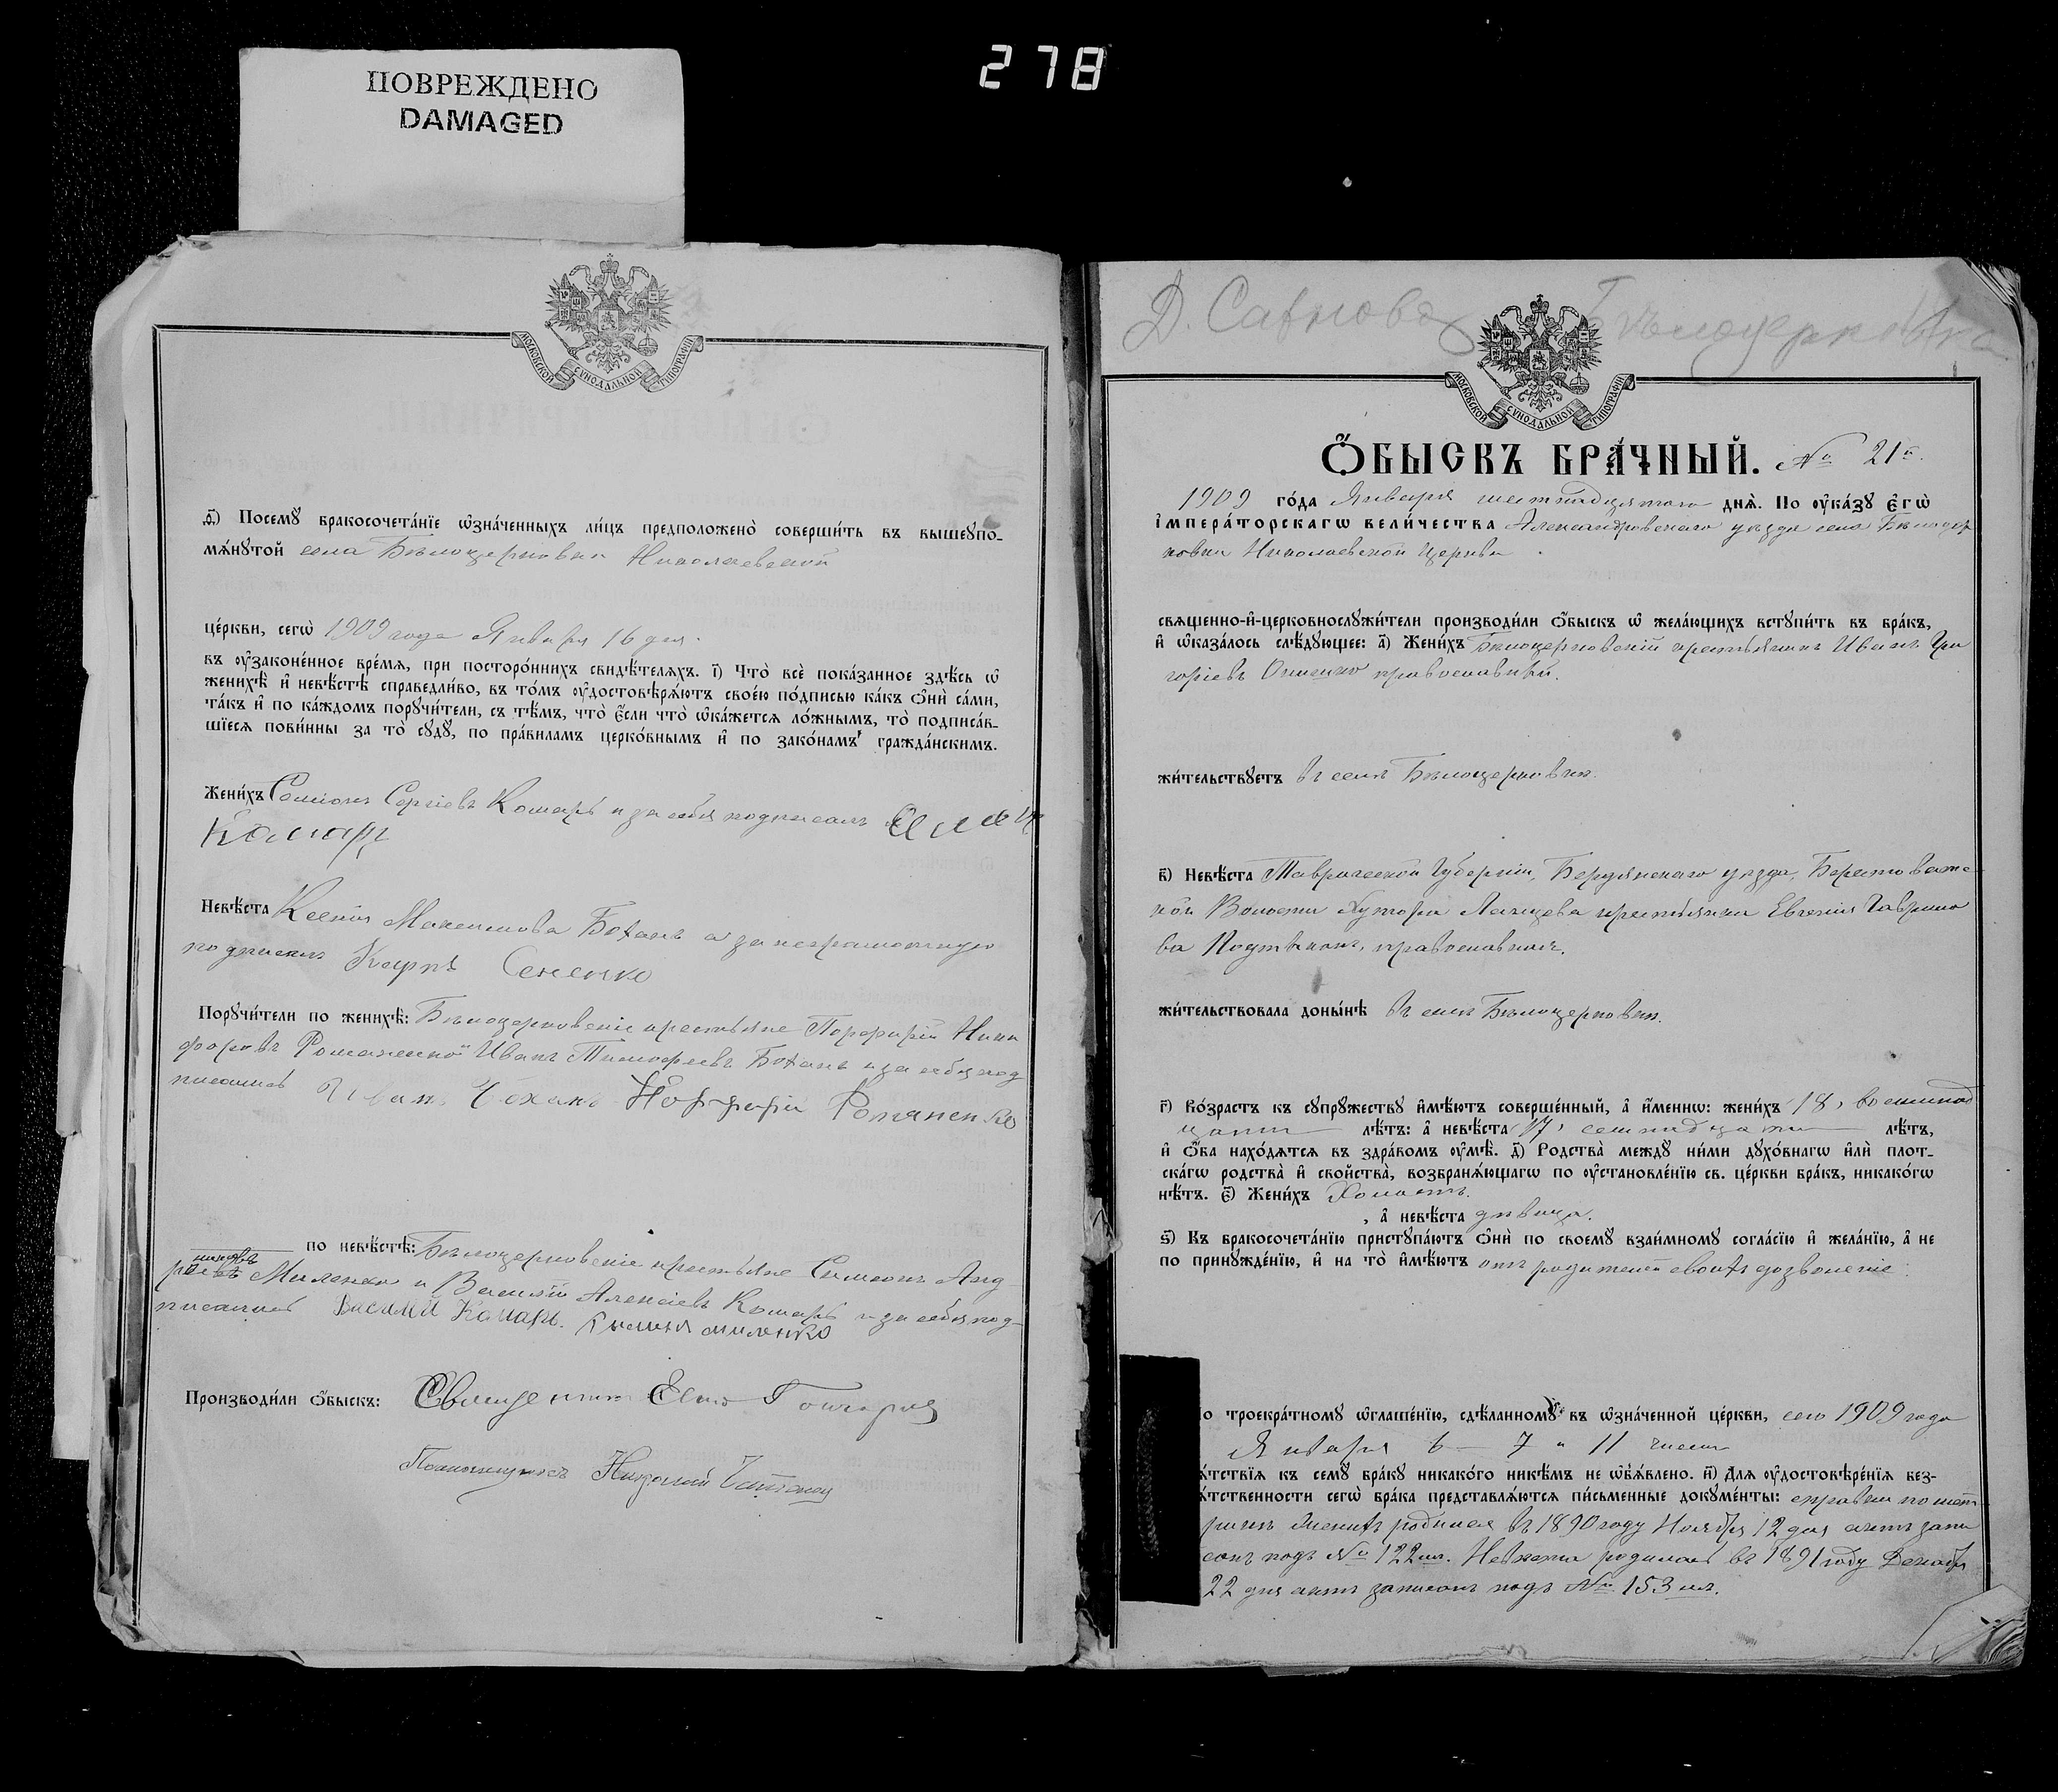 ПОВРЕЖДЕНО
DAMAGED
278
МОСКОВСКОЙ СУНОДАЛЬНОЙ ТИПОГРАФІИ
ѳ҃) Посемꙋ̀ бракосочета́нїе ѡ҆зна́ченныхъ ли́цъ предположено̀ соверши́ть въ вышеꙋпо-
мѧ́нꙋтой села Бѣлоцерковки Николаевской
це́ркви, сегѡ̀ 1909 года Января 16 дня.
въ ᲂу҆законе́нное вре́мѧ, при посторо́ннихъ свидѣ́телѧхъ. і҃) Что̀ всѐ пока́занное здѣ́сь ѡ҆
женихѣ̀ и҆ невѣ́стѣ справедли́во, въ то́мъ ᲂу҆достовѣрѧ́ютъ свое́ю по́дписью ка́къ ѻ҆нѝ са́ми,
та́къ и҆ по ка́ждомъ порꙋчи́тели, съ тѣ́мъ, что̀ є҆́сли что̀ ѡ҆ка́жетсѧ ло́жнымъ, то̀ подписа́в-
шїесѧ пови́нны за то̀ сꙋдꙋ̀, по пра́виламъ церко́внымъ и҆ по зако́намъ гражда́нскимъ.
Жени́хъ Семіонъ Сергіевъ Комаръ и за себя подписалъ
Комаръ
Невѣ́ста Ксенія Максимова Боханъ а за неграмотную
подписалъ Карпъ Сененко
Порꙋчи́тели по женихѣ̀: Бѣлоцерковскіе крестьяне Порфирій Ники
форовъ Романенко Иванъ Тимофеевъ Боханъ и за себя под
писались Иванъ Боханъ Порфирій Романенко
по невѣ́стѣ: Бѣлоцерковскіе крестьяне Симеонъ Анд
Миленко и Василій Алексіевъ Комаръ и за себя под-
писались Василій Комаръ. миленко
Производи́ли ѻ҆́быскъ: Священникъ Гончаровъ
Псаломщикъ Николай
Д. Савнова Бѣлоцерковка
МОСКОВСКОЙ СУНОДАЛЬНОЙ ТИПОГРАФІИ
Ѻ҆́БЫСКЪ БРА́ЧНЫЙ. № 21й.
1909 го́да Января шестнадцятого днѧ̀. По ᲂу҆ка́зꙋ Є҆гѡ̀
І҆мпера́торскагѡ вели́чества Александровскаго уѣзда села Бѣлоцер
ковки Николаевской церкви.
свѧщенно-и҆-церковнослꙋжи́тели производи́ли ѻ҆́быскъ ѡ҆ жела́ющихъ встꙋпи́ть въ бра́къ,
и҆ ѡ҆каза́лось слѣ́дꙋющее: а҃) Жени́хъ Бѣлоцерковскій крестьянинъ Иванъ Гри
горіевъ православный.
жи́тельствꙋетъ въ селѣ Бѣлоцерковкѣ.
в҃) Невѣ́ста Таврической Губерніи, Бердянскаго уѣзда, Берестоватс-
кой Волости Хутора крестьянка Евгенія Гаврило
ва православная.
жи́тельствовала доны́нѣ въ селѣ Бѣлоцерковкѣ.
г҃) Во́зрастъ къ сꙋпрꙋ́жествꙋ и҆мѣ́ютъ соверше́нный, а҆ и҆́меннѡ: жени́хъ 18, восемнад
цать лѣ́тъ: а҆ невѣ́ста 17, семнадцать лѣ́тъ,
и҆ ѻ҆́ба нахо́дѧтсѧ въ здра́вомъ ᲂу҆мѣ̀. д҃) Родства̀ междꙋ̀ ни́ми дꙋхо́внагѡ и҆лѝ плот-
ска́гѡ родства̀ и҆ сво́йства̀, возбранѧ́ющагѡ по ᲂу҆становле́нїю св. це́ркви бра́къ, никако́гѡ
нѣ́тъ. є҃) Жени́хъ Холостъ.
, а҆ невѣ́ста дѣвица.
ѕ҃) Къ бракосочета́нїю пристꙋпа́ютъ ѻ҆нѝ по своемꙋ̀ взаи́мномꙋ согла́сїю и҆ жела́нїю, а҆ не
по принꙋжде́нїю, и҆ на то̀ и҆мѣ́ютъ отъ родителей своихъ дозволеніе.
о троекра́тномꙋ ѡ҆глаше́нїю, сдѣ́ланномꙋ въ ѡ҆зна́ченной це́ркви, сего 1909 года
Января 6 – 7 и 11 числа
ѧ́тствїѧ къ семꙋ̀ бра́кꙋ никако́го никѣ́мъ не ѡ҆б̾ѧ́влено. и҃) Длѧ ᲂу҆достовѣре́нїѧ без-
ѧ́тственности сегѡ̀ бра́ка представлѧ́ютсѧ пи́сьменные докꙋме́нты: справки по мет
рикѣ Женихъ родился въ 1890 году Ноября 12 дня актъ запи
санъ подъ № 122мъ. Невѣста родилась въ 1891 году Декабр
22 дня актъ записанъ подъ № 153мъ.